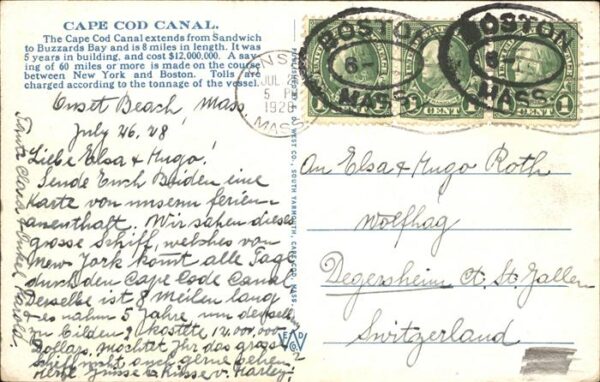 CAPE COD CANAL.
The Cape Cod Canal extends from Sandwich
to Buzzards Bay and is 8 miles in length. It was
5 years in building, and cost $12,000,000. A sav-
ing of 60 miles or more is made on the course
between New York and Boston. Tolls are
charged according to the tonnage of the vessel.
BOSTON
MASS.
BOSTON
MASS.
1 CENT 1
CENT
CENT 1
JUL
5 P
1928
MASS
Onset Beach, Mass.
July 26. 28
Liebe Elsa & Hugo!
Sende Euch Beiden eine
Karte von unserm ferien-
aufenthalt. Wir sahen dieses
grosse Schiff, welches von
New York komt alle Tage
durch den Cape Code Canal
Derselbe ist 8 Meilen lang
& es nahm 5 Jahre, um denselb
zu bilden & kostete 12.000.000
Dollars. Möchtet Ihr das grosse
Schiff nicht auch gerne sehen
Grüsse & Küsse v. Harley!
Tante Clara & Onkel Harold.
PUBLISHED BY E. D. WEST CO., SOUTH YARMOUTH, CAPE COD, MASS.
E D
W
Co
An Elsa & Hugo Roth
Wolfhag
Degersheim Ct. St. Gallen
Switzerland